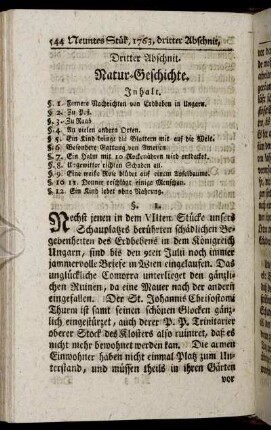 544 Neuntes Stük, 1763, dritter Abschnit,
Dritter Abschnit.
Natur-Geschichte.
Inhalt.
§. 1. Fernere Nachrichten von Erdbeben in Ungarn.
§. 2. Zu Pest.
§. 3. Zu Raab
§. 4. An vielen andern Orten.
§. 5. Ein Kind bringt die Blattern mit auf die Welt.
§. 6. Besondere Gattung von Ameisen
§. 7. Ein Halm mit 10 Rockenähren wird entdecket.
§. 8. Ungewitter richten Schaden an.
§. 9. Eine weiße Rose blühet auf einem Apfelbaume.
§. 10 11. Donner erschlägt einige Menschen.
§. 12. Ein Kind lebet ohne Nahrung.
§. 1.
Nechst jenen in dem VIIten Stücke unsers
Schauplatzes berührten schädlichen Be-
gebenheiten des Erdbebens in dem Königreich
Ungarn, sind bis den 9ten Juli noch immer
jammervolle Briefe in Wien eingelaufen. Das
unglückliche Comorra unterlieget den gänzli-
chen Ruinen, da eine Mauer nach der andern
eingefallen. Der St. Johannis Chrisostomi
Thurm ist samt seinen schönen Glocken gänz-
lich eingestürzt, auch derer P. P. Trinitarier
oberer Stock des Klosters also ruiniret, daß es
nicht mehr bewohnet werden kan. Die armen
Einwohner haben nicht einmal Platz zum Un-
terstand, und müssen theils in ihren Gärten
vor